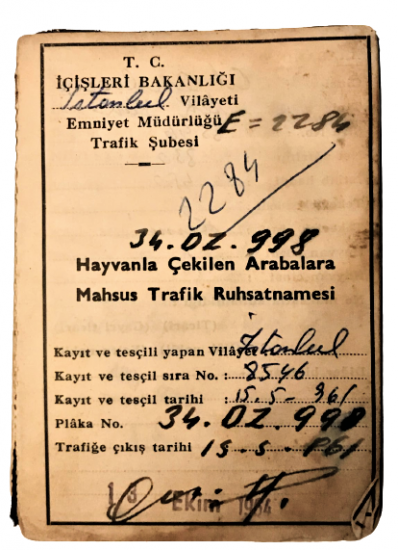 T. C.
İÇİŞLERİ BAKANLIĞI
İstanbul Vilâyeti
Emniyet Müdürlüğü E=2284
Trafik Şubesi
2284
34.OZ.998
Hayvanla Çekilen Arabalara
Mahsus Trafik Ruhsatnamesi
Kayıt ve tesçili yapan Vilâyet İstanbul
Kayıt ve tesçil sıra No. : 8546
Kayıt ve tesçil tarihi : 15.5-961
Plâka No. 34.OZ.998
Trafiğe çıkış tarihi 15-5-961
13 Ekim 1964